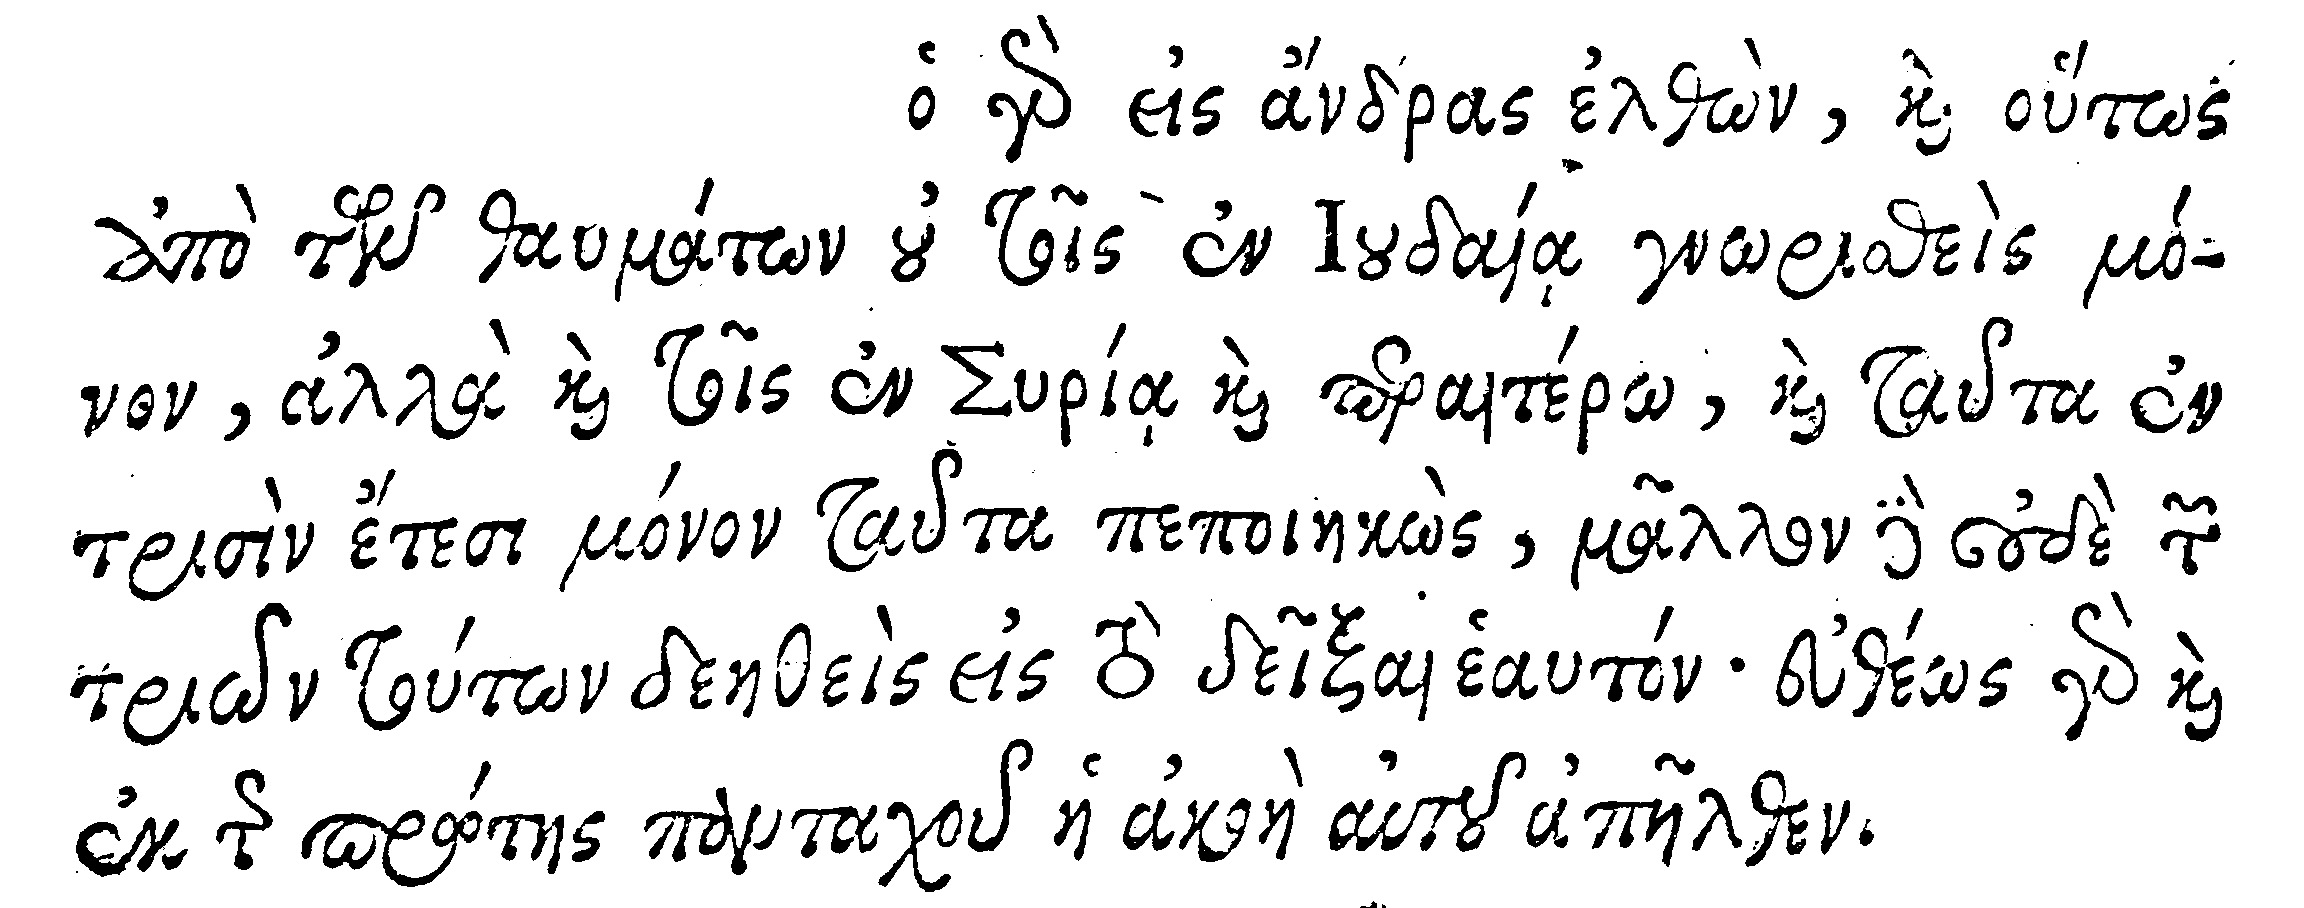 ὁ γὰρ εἰς ἄνδρας ἐλθὼν, καὶ οὕτως
ἀπὸ τῶν θαυμάτων οὐ τοῖς ἐν Ιουδαίᾳ γνωρισθεὶς μό-
νον, ἀλλὰ καὶ τοῖς ἐν Συρίᾳ καὶ περαιτέρω, καὶ ταῦτα ἐν
τρισὶν ἔτεσι μόνον ταῦτα πεποιηκὼς, μᾶλλον δὲ οὐδὲ τῶν
τριῶν τούτων δεηθεὶς εἰς τὸ δεῖξαι ἑαυτόν· εὐθέως γὰρ καὶ
ἐκ τῆς πρώτης πανταχοῦ ἡ ἀκοὴ αὐτοῦ ἀπῆλθεν.